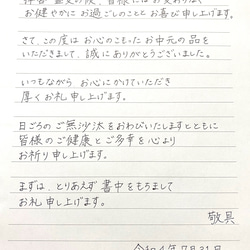 お健やかにお過ごしのこととお喜び申し上げます。
さて、この度はお心のこもったお中元の品を
いただきまして、誠にありがとうございました。
いつもながらお心にかけていただき
厚くお礼申し上げます。
日ごろのご無沙汰をおわびいたしますとともに
皆様のご健康とご多幸を心より
お祈り申し上げます。
まずは、とりあえず書中をもちまして
お礼申し上げます。
敬具
令和4年7月31日